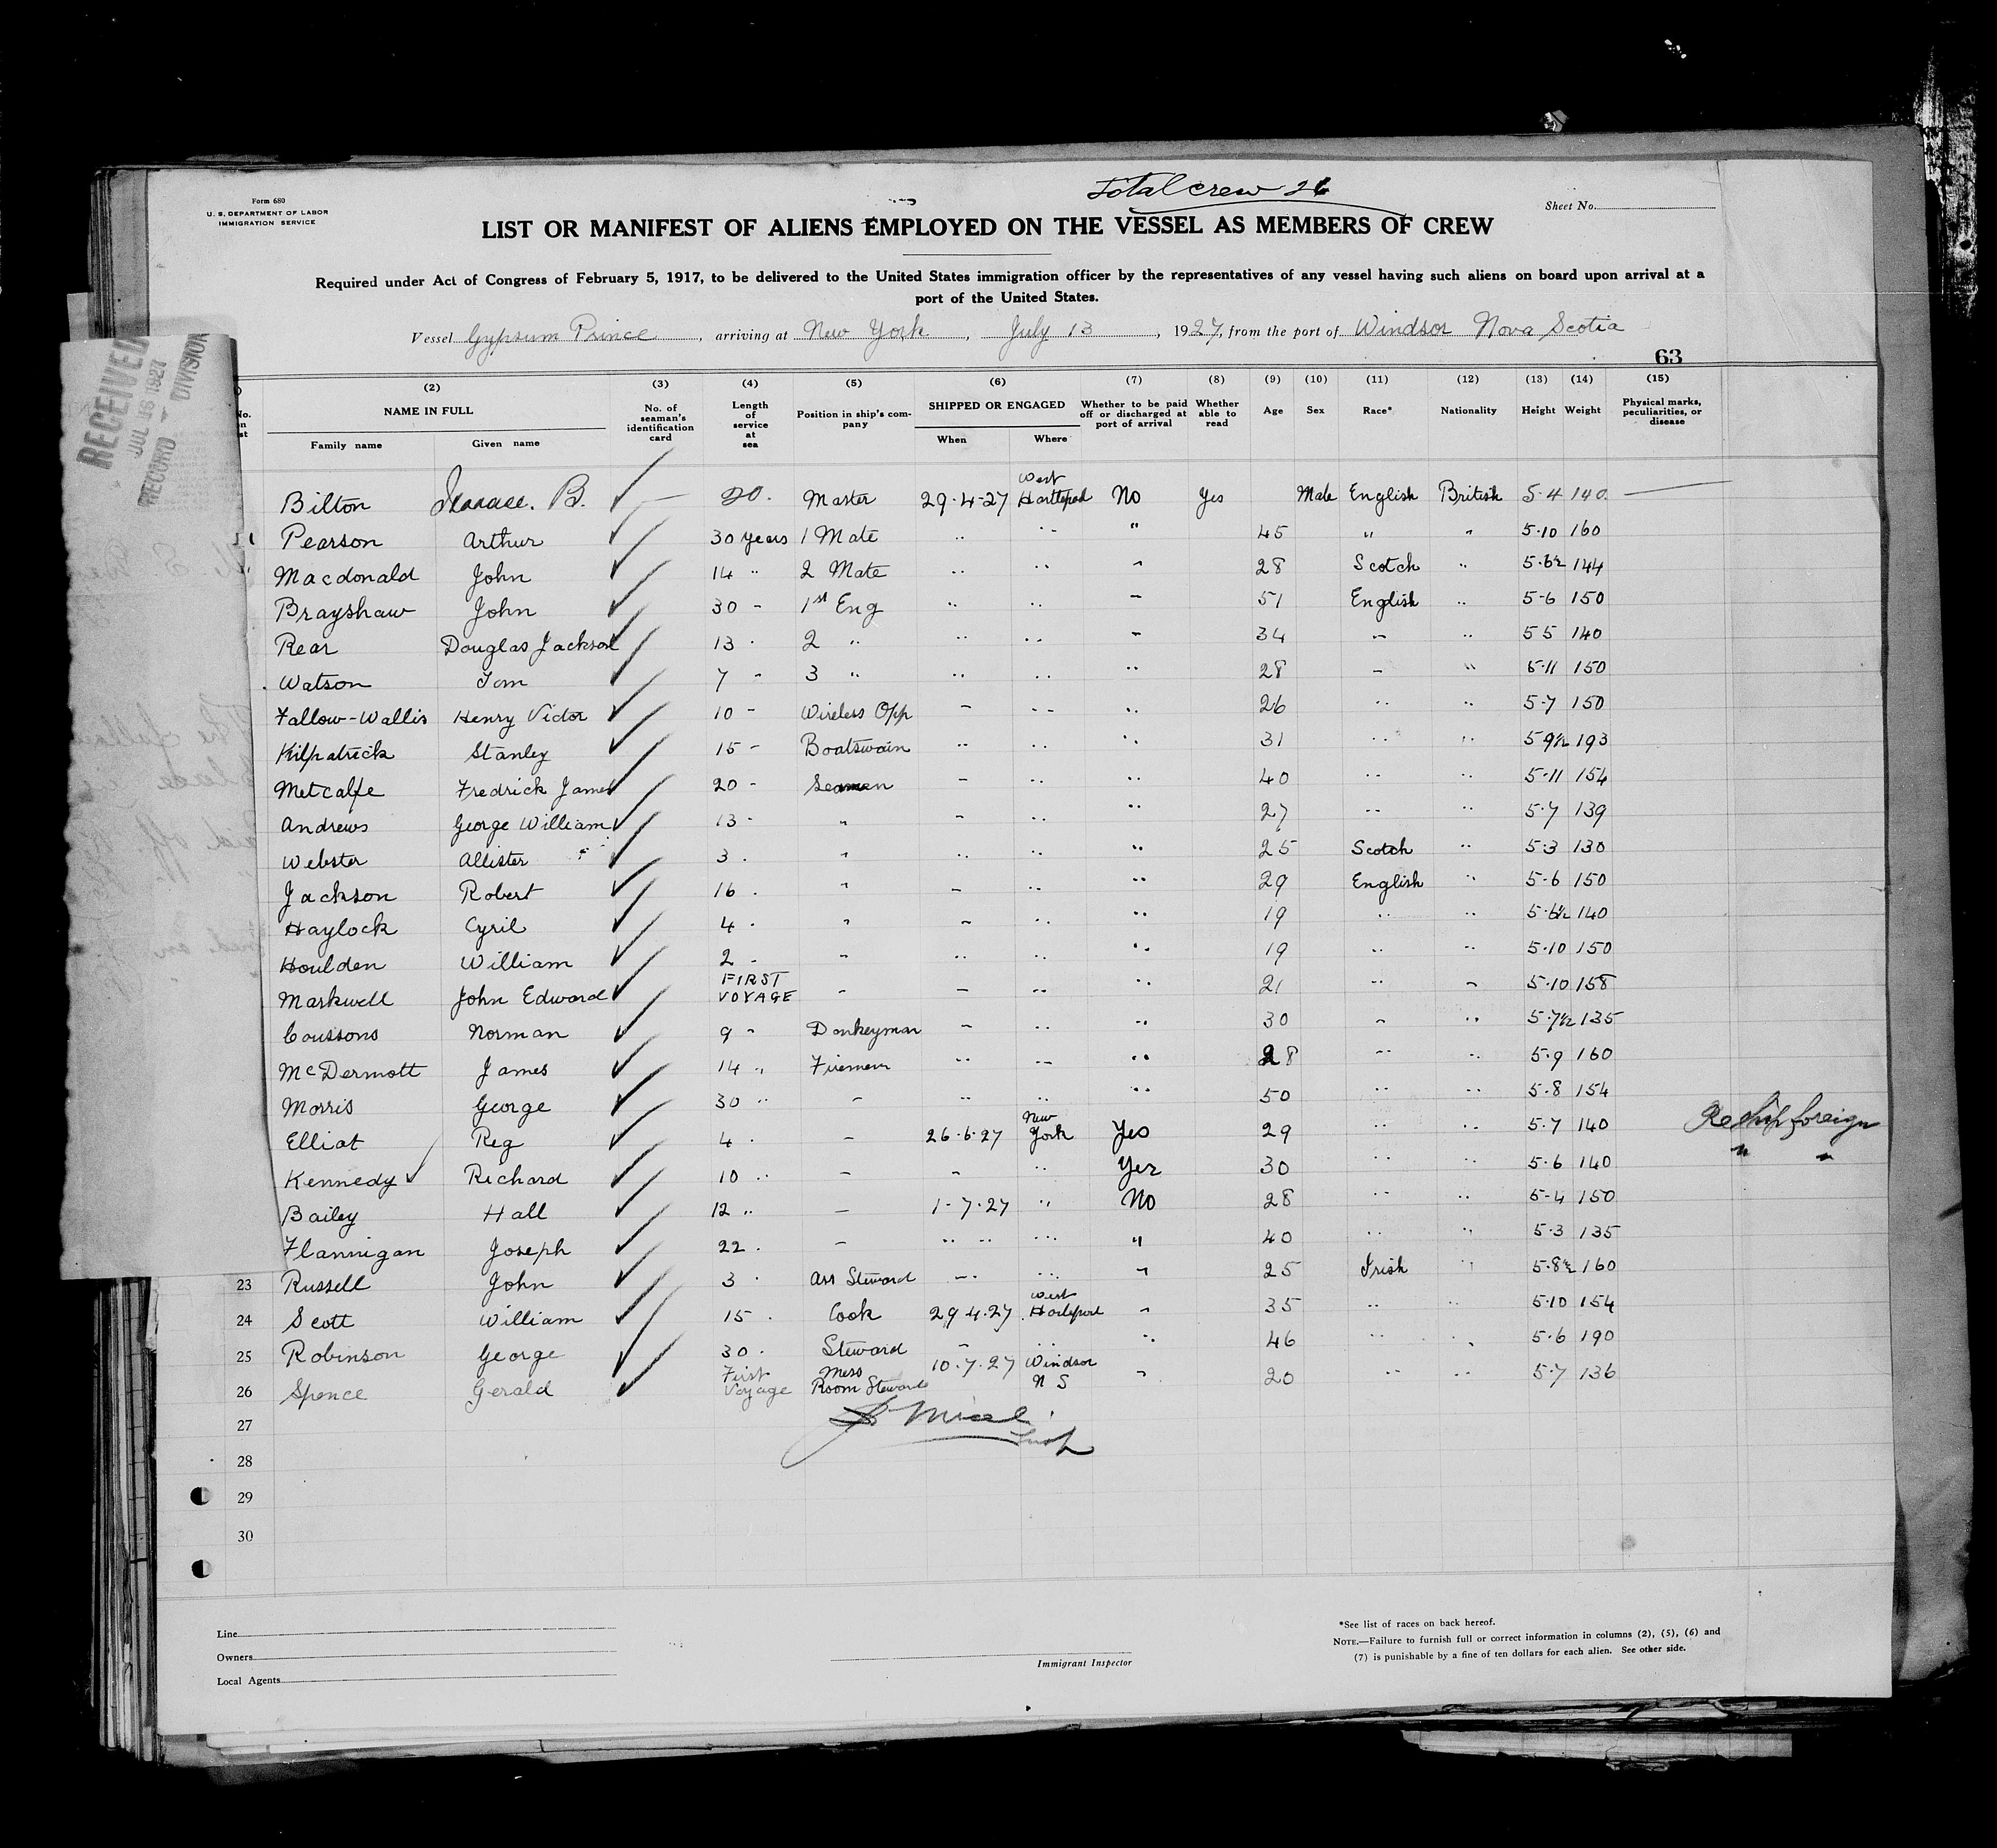 Total crew 26
Form 680
U. S. DEPARTMENT OF LABOR
IMMIGRATION SERVICE
Sheet No.
LIST OR MANIFEST OF ALIENS EMPLOYED ON THE VESSEL AS MEMBERS OF CREW
Required under Act of Congress of February 5, 1917, to be delivered to the United States immigration officer by the representatives of any vessel having such aliens on board upon arrival at a
port of the United States.
Vessel Gypsum Prince, arriving at New York, July 13, 1927, from the port of Windsor Nova Scotia
63
RECEIVED
RECORD DIVISION
(2) (3) (4) (5) (6) (7) (8) (9) (10) (11) (12) (13) (14) (15)
NAME IN FULL Family name Given name No. of seaman's identification card Length of service at sea Position in ship's company SHIPPED OR ENGAGED When Where Whether to be paid off or discharged at port of arrival Whether able to read Age Sex Race* Nationality Height Weight Physical marks, peculiarities, or disease
Bilton B. ✓ — 20. Master 29-4-27 West Hartlepool No Yes Male English British 5-4 140 —
Pearson Arthur ✓ 30 years 1 Mate .. .. " 45 " " 5-10 160
Macdonald John ✓ 14 .. 2 Mate .. .. " 28 Scotch .. 5-6½ 144
Brayshaw John ✓ 30 - 1st Eng .. .. - 51 English .. 5-6 150
Rear Douglas Jackson ✓ 13 . 2 .. .. .. - 34 - .. 5 5 140
Watson Tom ✓ 7 - 3 .. .. .. .. 28 - .. 5-11 150
Fallow-Wallis Henry Victor ✓ 10 - Wireless Opp - .. .. 26 .. .. 5-7 150
Kilpatrick Stanley ✓ 15 - Boatswain .. .. .. 31 .. .. 5 9½ 193
Metcalfe Fredrick James ✓ 20 - Seaman - .. .. 40 .. .. 5-11 154
Andrews George William ✓ 13 - " - .. .. 27 .. .. 5-7 139
Webster Allister ✓ 3 . " .. .. .. 25 Scotch .. 5-3 130
Jackson Robert ✓ 16 . " - .. .. 29 English .. 5-6 150
Haylock Cyril ✓ 4 . " - .. .. 19 .. .. 5-6½ 140
Houlden William ✓ 2 - " .. .. .. 19 .. .. 5-10 150
Markwell John Edward ✓ FIRST VOYAGE - - .. .. 21 .. - 5-10 158
Coussons Norman ✓ 9 - Donkeyman - .. .. 30 - .. 5-7½ 135
McDermott James ✓ 14 .. Firemen .. .. .. 28 .. .. 5-9 160
Morris George ✓ 30 .. - .. .. .. 50 .. .. 5-8 154
Elliat Reg ✓ 4 . - 26-6-27 New York Yes 29 .. .. 5-7 140 Reship foreign
Kennedy ✓ Richard ✓ 10 .. - - .. Yes 30 .. .. 5-6 140 " "
Bailey Hall ✓ 12 .. - 1-7-27 .. No 28 .. .. 5-4 150
Flannigan Joseph ✓ 22 . - .. .. .. " 40 .. .. 5-3 135
23 Russell John ✓ 3 . Ass Steward - .. " 25 Irish " 5-8½ 160
24 Scott William ✓ 15 . Cook 29.4.27 West Hartlepool " 35 .. .. 5-10 154
25 Robinson George ✓ 30 . Steward - .. .. 46 .. .. 5-6 190
26 Spence Gerald ✓ First Voyage Mess Room Steward 10-7-27 Windsor N S " 20 .. .. 5-7 136
27
28
29
30
Line
Owners
Local Agents
Immigrant Inspector
*See list of races on back hereof.
NOTE.—Failure to furnish full or correct information in columns (2), (5), (6) and
(7) is punishable by a fine of ten dollars for each alien. See other side.